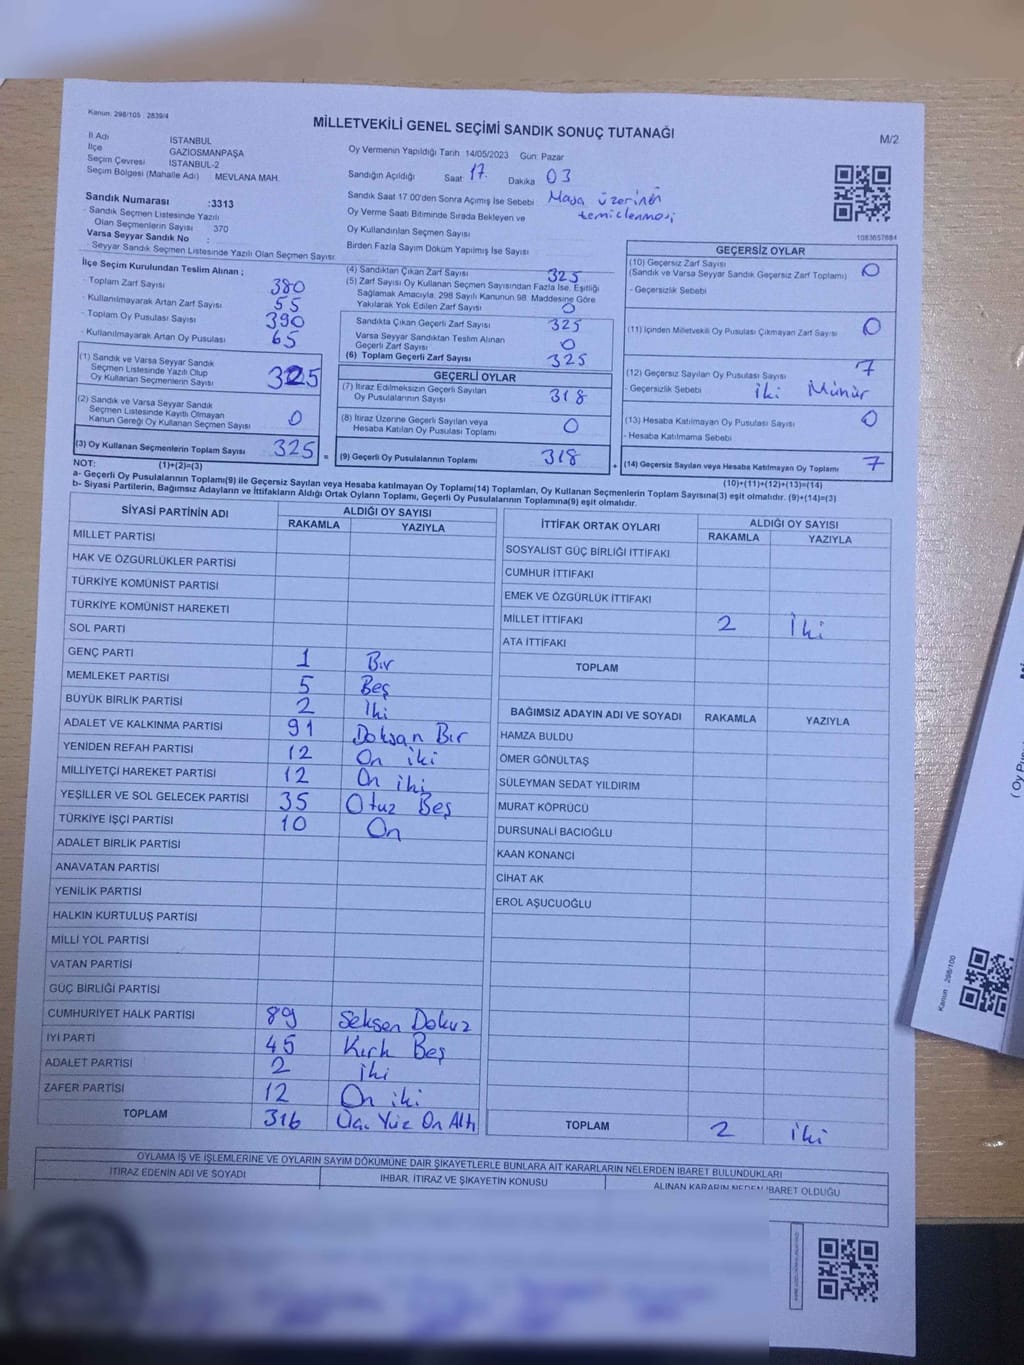 Kanun: 298/105 , 2839/4
MİLLETVEKİLİ GENEL SEÇİMİ SANDIK SONUÇ TUTANAĞI
M/2
İl Adı İSTANBUL
İlçe GAZİOSMANPAŞA
Seçim Çevresi İSTANBUL-2
Seçim Bölgesi (Mahalle Adı) MEVLANA MAH.
Oy Vermenin Yapıldığı Tarih 14/05/2023 Gün: Pazar
Sandığın Açıldığı Saat 17. Dakika 03
Sandık Saat 17.00'den Sonra Açımış İse Sebebi Masa üzerinin temizlenmesi
Oy Verme Saati Bitiminde Sırada Bekleyen ve
Oy Kullandırılan Seçmen Sayısı
Birden Fazla Sayım Döküm Yapılmış İse Sayısı
1083657884
Sandık Numarası :3313
- Sandık Seçmen Listesinde Yazılı
Olan Seçmenlerin Sayısı 370
Varsa Seyyar Sandık No :
- Seyyar Sandık Seçmen Listesinde Yazılı Olan Seçmen Sayısı
İlçe Seçim Kurulundan Teslim Alınan ;
- Toplam Zarf Sayısı 380
- Kullanılmayarak Artan Zarf Sayısı 55
- Toplam Oy Pusulası Sayısı 390
- Kullanılmayarak Artan Oy Pusulası 65
(1) Sandık ve Varsa Seyyar Sandık
Seçmen Listesinde Yazılı Olup
Oy Kullanan Seçmenlerin Sayısı 325
(2) Sandık ve Varsa Seyyar Sandık
Seçmen Listesinde Kayıtlı Olmayan
Kanun Gereği Oy Kullanan Seçmen Sayısı 0
(3) Oy Kullanan Seçmenlerin Toplam Sayısı 325 =
(4) Sandıktan Çıkan Zarf Sayısı 325
(5) Zarf Sayısı Oy Kullanan Seçmen Sayısından Fazla İse, Eşitliği
Sağlamak Amacıyla, 298 Sayılı Kanunun 98. Maddesine Göre
Yakılarak Yok Edilen Zarf Sayısı 0
Sandıkta Çıkan Geçerli Zarf Sayısı 325
Varsa Seyyar Sandıktan Teslim Alınan
Geçerli Zarf Sayısı 0
(6) Toplam Geçerli Zarf Sayısı 325
GEÇERLİ OYLAR
(7) İtiraz Edilmeksizin Geçerli Sayılan
Oy Pusulalarının Sayısı 318
(8) İtiraz Üzerine Geçerli Sayılan veya
Hesaba Katılan Oy Pusulası Toplamı 0
(9) Geçerli Oy Pusulalarının Toplamı 318 +
GEÇERSİZ OYLAR
(10) Geçersiz Zarf Sayısı 0
(Sandık ve Varsa Seyyar Sandık Geçersiz Zarf Toplamı)
- Geçersizlik Sebebi
(11) İçinden Milletvekili Oy Pusulası Çıkmayan Zarf Sayısı 0
(12) Geçersiz Sayılan Oy Pusulası Sayısı 7
- Geçersizlik Sebebi İki Mühür
(13) Hesaba Katılmayan Oy Pusulası Sayısı 0
- Hesaba Katılmama Sebebi
(14) Geçersiz Sayılan veya Hesaba Katılmayan Oy Toplamı 7
NOT: (1)+(2)=(3)
(10)+(11)+(12)+(13)=(14)
a- Geçerli Oy Pusulalarının Toplamı(9) ile Geçersiz Sayılan veya Hesaba Katılmayan Oy Toplamı(14) Toplamları, Oy Kullanan Seçmenlerin Toplam Sayısına(3) eşit olmalıdır. (9)+(14)=(3)
b- Siyasi Partilerin, Bağımsız Adayların ve İttifakların Aldığı Ortak Oyların Toplamı, Geçerli Oy Pusulalarının Toplamına(9) eşit olmalıdır.
SİYASİ PARTİNİN ADI ALDIĞI OY SAYISI
RAKAMLA YAZIYLA
MİLLET PARTİSİ
HAK VE ÖZGÜRLÜKLER PARTİSİ
TÜRKİYE KOMÜNİST PARTİSİ
TÜRKİYE KOMÜNİST HAREKETİ
SOL PARTİ
GENÇ PARTİ 1 Bir
MEMLEKET PARTİSİ 5 Beş
BÜYÜK BİRLİK PARTİSİ 2 İki
ADALET VE KALKINMA PARTİSİ 91 Doksan Bir
YENİDEN REFAH PARTİSİ 12 On iki
MİLLİYETÇİ HAREKET PARTİSİ 12 On iki
YEŞİLLER VE SOL GELECEK PARTİSİ 35 Otuz Beş
TÜRKİYE İŞÇİ PARTİSİ 10 On
ADALET BİRLİK PARTİSİ
ANAVATAN PARTİSİ
YENİLİK PARTİSİ
HALKIN KURTULUŞ PARTİSİ
MİLLİ YOL PARTİSİ
VATAN PARTİSİ
GÜÇ BİRLİĞİ PARTİSİ
CUMHURİYET HALK PARTİSİ 89 Seksen Dokuz
İYİ PARTİ 45 Kırk Beş
ADALET PARTİSİ 2 İki
ZAFER PARTİSİ 12 On iki
TOPLAM 316 Üç Yüz On Altı
İTTİFAK ORTAK OYLARI ALDIĞI OY SAYISI
RAKAMLA YAZIYLA
SOSYALİST GÜÇ BİRLİĞİ İTTİFAKI
CUMHUR İTTİFAKI
EMEK VE ÖZGÜRLÜK İTTİFAKI
MİLLET İTTİFAKI 2 İki
ATA İTTİFAKI
TOPLAM
BAĞIMSIZ ADAYIN ADI VE SOYADI RAKAMLA YAZIYLA
HAMZA BULDU
ÖMER GÖNÜLTAŞ
SÜLEYMAN SEDAT YILDIRIM
MURAT KÖPRÜCÜ
DURSUNALİ BACIOĞLU
KAAN KONANCI
CİHAT AK
EROL AŞUCUOĞLU
TOPLAM 2 iki
OYLAMA İŞ VE İŞLEMLERİNE VE OYLARIN SAYIM DÖKÜMÜNE DAİR ŞİKAYETLERLE BUNLARA AİT KARARLARIN NELERDEN İBARET BULUNDUKLARI
İTİRAZ EDENİN ADI VE SOYADI İHBAR, İTİRAZ VE ŞİKAYETİN KONUSU ALINAN KARARIN NEDEN İBARET OLDUĞU
Kanun : 298/100